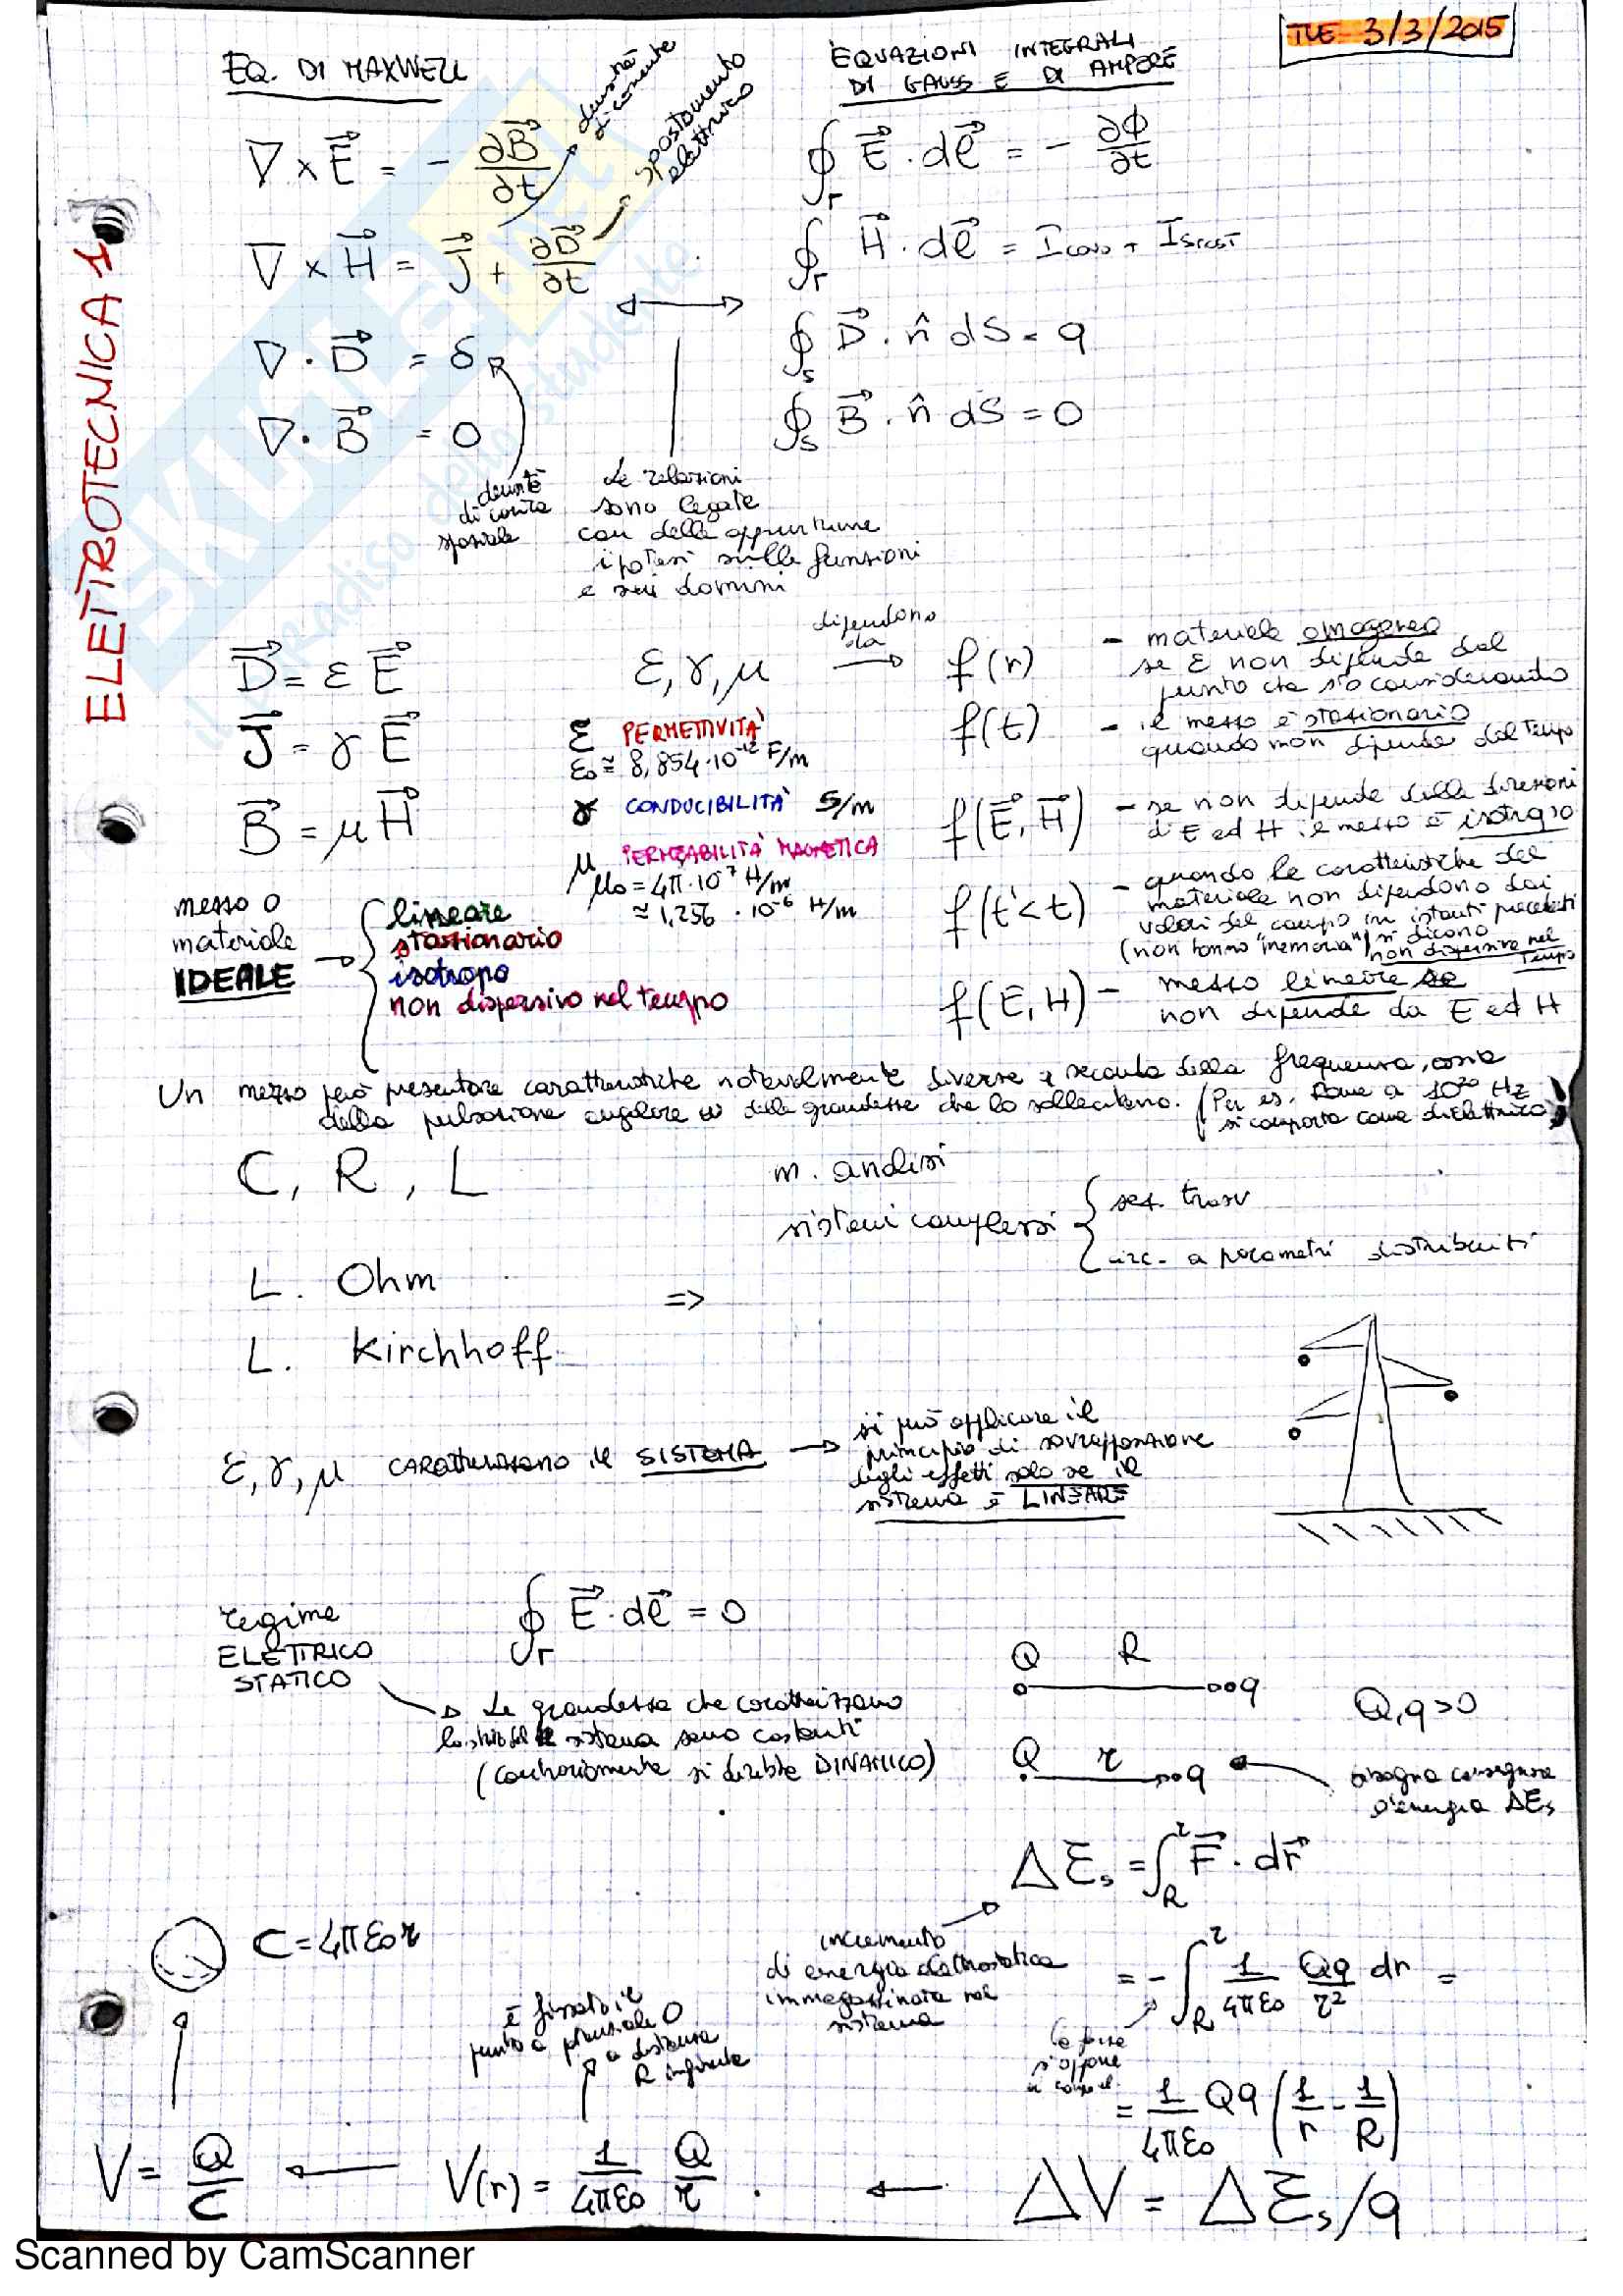 TUE 3/3/2015
ELETTROTECNICA 1
EQ. DI MAXWELL
∇ × E⃗ = - ∂B⃗/∂t
densità
di corrente
∇ × H⃗ = J⃗ + ∂D⃗/∂t
spostamento
elettrico
∇ · D⃗ = δ
∇ · B⃗ = 0
densità
di carica
spaziale
EQUAZIONI INTEGRALI
DI GAUSS E DI AMPERE
∮r E⃗ · dl⃗ = - ∂Φ/∂t
∮r H⃗ · dl⃗ = Icond + Ispost
∮s D⃗ · n̂ dS = q
∮s B⃗ · n̂ dS = 0
Le relazioni
sono legate
con delle opportune
ipotesi sulle funzioni
e sui domini
D⃗ = ε E⃗
J⃗ = γ E⃗
B⃗ = μ H⃗
ε, γ, μ dipendono da → f(r)
- materiale omogeneo
se ε non dipende dal
punto che sto considerando
ε PERMETTIVITÀ
ε0 ≅ 8,854·10⁻¹² F/m
γ CONDUCIBILITÀ S/m
μ PERMEABILITÀ MAGNETICA
μ0 = 4π·10⁻⁷ H/m
≈ 1,256 · 10⁻⁶ H/m
f(t) - il mezzo è stazionario
quando non dipende dal tempo
f(E⃗, H⃗) - se non dipende dalle direzioni
di E ed H il mezzo è isotropo
f(t'<t) - quando le caratteristiche del
materiale non dipendono dai
valori del campo in istanti precedenti
(non hanno "memoria") si dicono
non dispersive nel
tempo
f(E, H) - mezzo lineare se
non dipende da E ed H
mezzo o
materiale
IDEALE →
lineare
stazionario
isotropo
non dispersivo nel tempo
Un mezzo può presentare caratteristiche notevolmente diverse a seconda della frequenza, ossia
della pulsazione angolare ω delle grandezze che lo sollecitano. (Per es. Rame a 10²⁰ Hz
si comporta come dielettrico)
C, R, L
m. analisi
sistemi complessi
set. trasv
circ. a parametri distribuiti
L. Ohm
=>
L. Kirchhoff
ε, γ, μ CARATTERIZZANO il SISTEMA →
si può applicare il
principio di sovrapposizione
degli effetti solo se il
sistema è LINEARE
regime
ELETTRICO
STATICO
∮r E⃗ · dl⃗ = 0
Le grandezze che caratterizzano
lo stato del sistema sono costanti
(contrariamente si direbbe DINAMICO)
Q R
q
Q,q>0
Q r
q
bisogna consegnare
l'energia ΔEs
ΔEs = ∫R^r F⃗ · dr⃗
incremento
di energia elettrostatica
immagazzinata nel
sistema
= - ∫R^r 1/4πε0 Qq/r² dr =
la forza
si oppone
= 1/4πε0 Qq (1/r - 1/R)
C = 4πε0r
è fissato il
punto a potenziale 0
a distanza
R infinita
V = Q/C ← V(r) = 1/4πε0 Q/r . ← ΔV = ΔEs/q
Scanned by CamScanner
SKUOLA.net
il paradiso dello studente